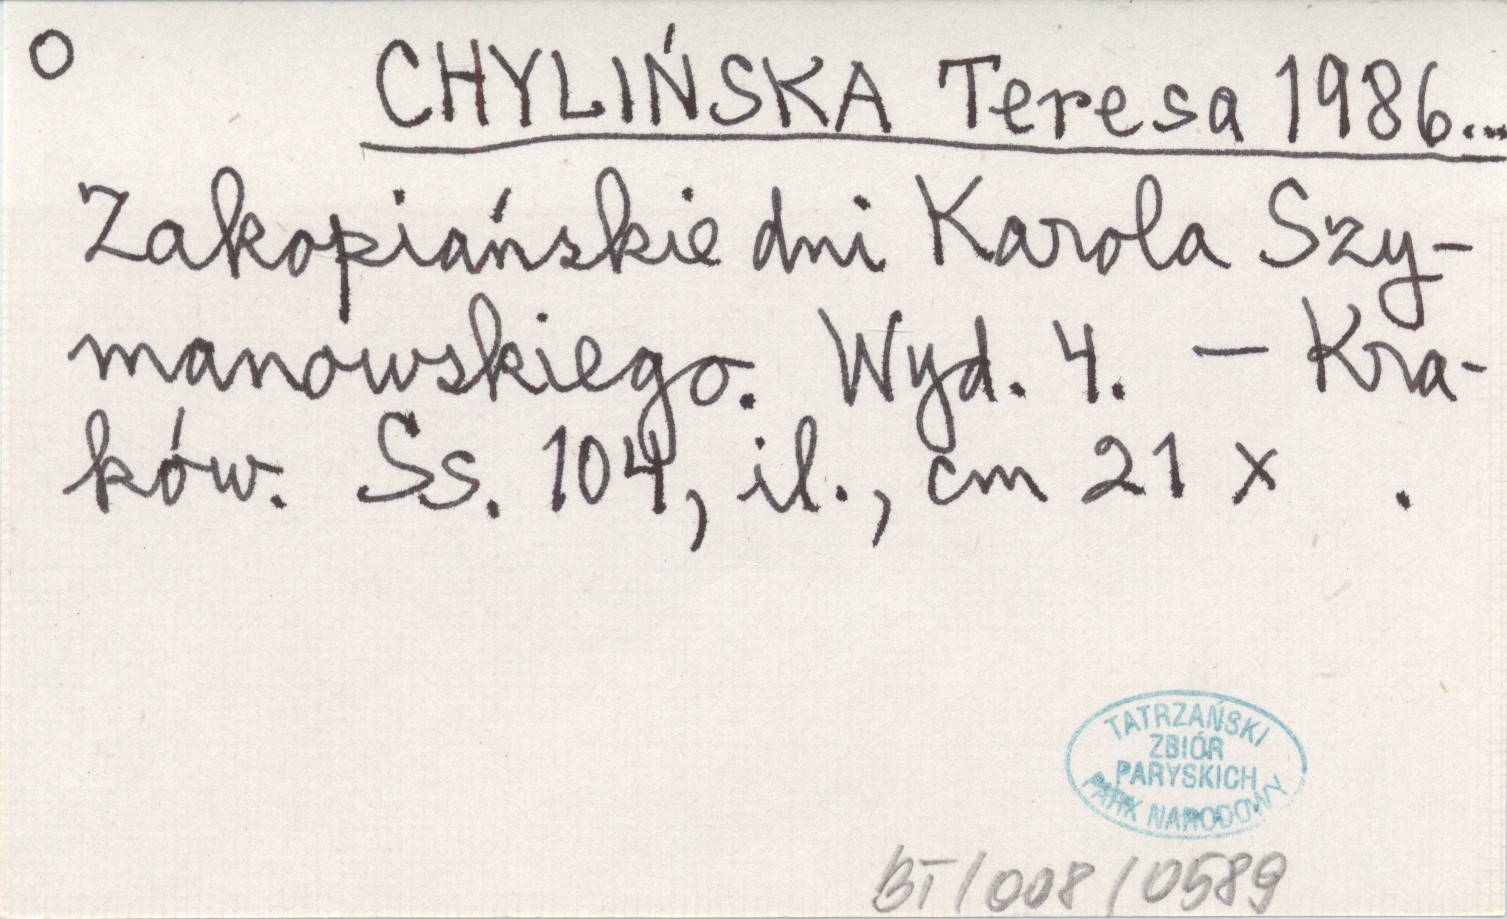 O
CHYLIŃSKA Teresa 1986...
Zakopiańskie dni Karola Szy-
manowskiego. Wyd. 4. — Kra-
ków. Ss. 104, il., cm 21 x .
TATRZAŃSKI
ZBIÓR
PARYSKICH
PARK NARODOWY
BT/008/0589